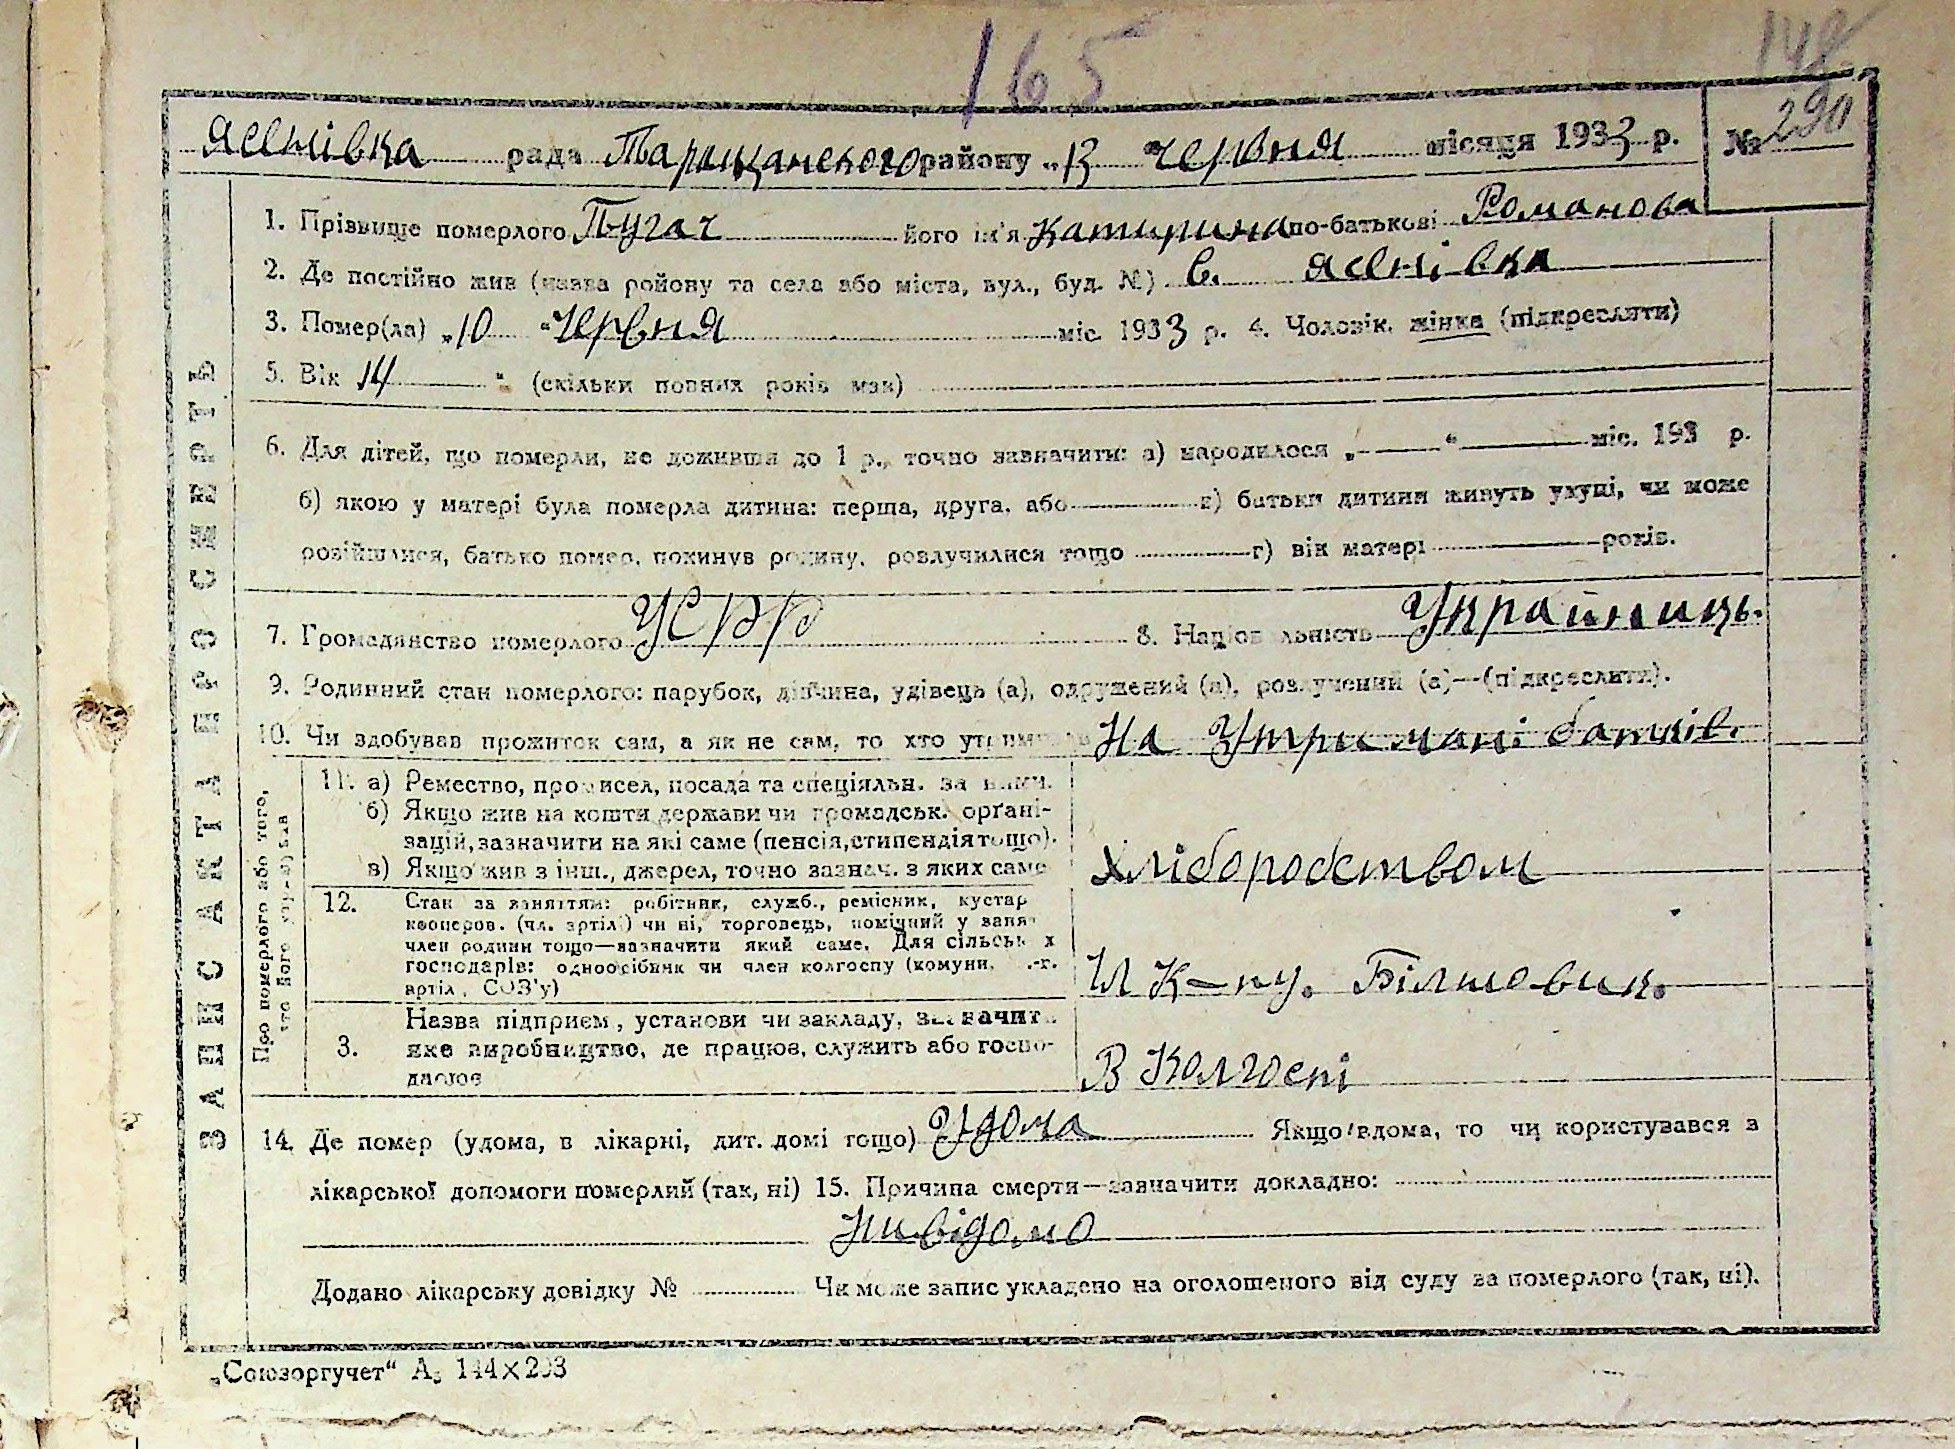 165
148
Ясенівка рада Таращанського району „13 Червня місяця 1933 р. № 290
1. Прізвище померлого Пугач його ім'я Катирина по-батькові Романова
2. Де постійно жив (назва району та села або міста, вул., буд. №) с. Ясенівка
3. Помер(ла) „10 " Червня міс. 1933 р. 4. Чоловік, жінка (підкреслити)
5. Вік 14 " (скільки повних років мав)
6. Для дітей, що померли, не доживши до 1 р., точно зазначити: а) народилося „ — " — міс. 193 р.
б) якою у матері була померла дитина: перша, друга, або — в) батьки дитини живуть укупі, чи може
розійшлися, батько помер, покинув родину, розлучилися тощо — г) вік матері — років.
7. Громадянство померлого УСРР 8. Національність Украйниць.
9. Родинний стан померлого: парубок, дівчина, удівець (а), одружений (а), розлучений (а)—(підкреслити).
10. Чи здобував прожиток сам, а як не сам, то хто утримував На Утримані батьків.
ЗАПИС АКТА ПРО СМЕРТЬ
Про померлого або того, хто його утримував
11. а) Ремество, промисел, посада та спеціяльн. за ними.
б) Якщо жив на кошти держави чи громадськ. орґані-
зацій, зазначити на які саме (пенсія, стипендія тощо).
в) Якщо жив з інш., джерел, точно зазнач. з яких саме
хліборобством
12. Стан за заняттям: робітник, служб., ремісник, кустар
кооперов. (чл. артілі) чи ні, торговець, помічний у занят
член родини тощо—зазначити який саме. Для сільськ х
господарів: одноосібник чи член колгоспу (комуни, с.-г.
артіл, СОЗ'у)
Чл К-пу. Білшовик.
Назва підприєм., установи чи закладу, зазначит
3. яке виробництво, де працює, служить або госпо-
дарює
В Колгоспі
14. Де помер (удома, в лікарні, дит. домі тощо) Удома Якщо вдома, то чи користувався з
лікарської допомоги померлий (так, ні) 15. Причина смерти—зазначити докладно:
Нивідомо
Додано лікарську довідку № Чи може запис укладено на оголошеного від суду за померлого (так, ні).
„Союзоргучет" А5 144×203